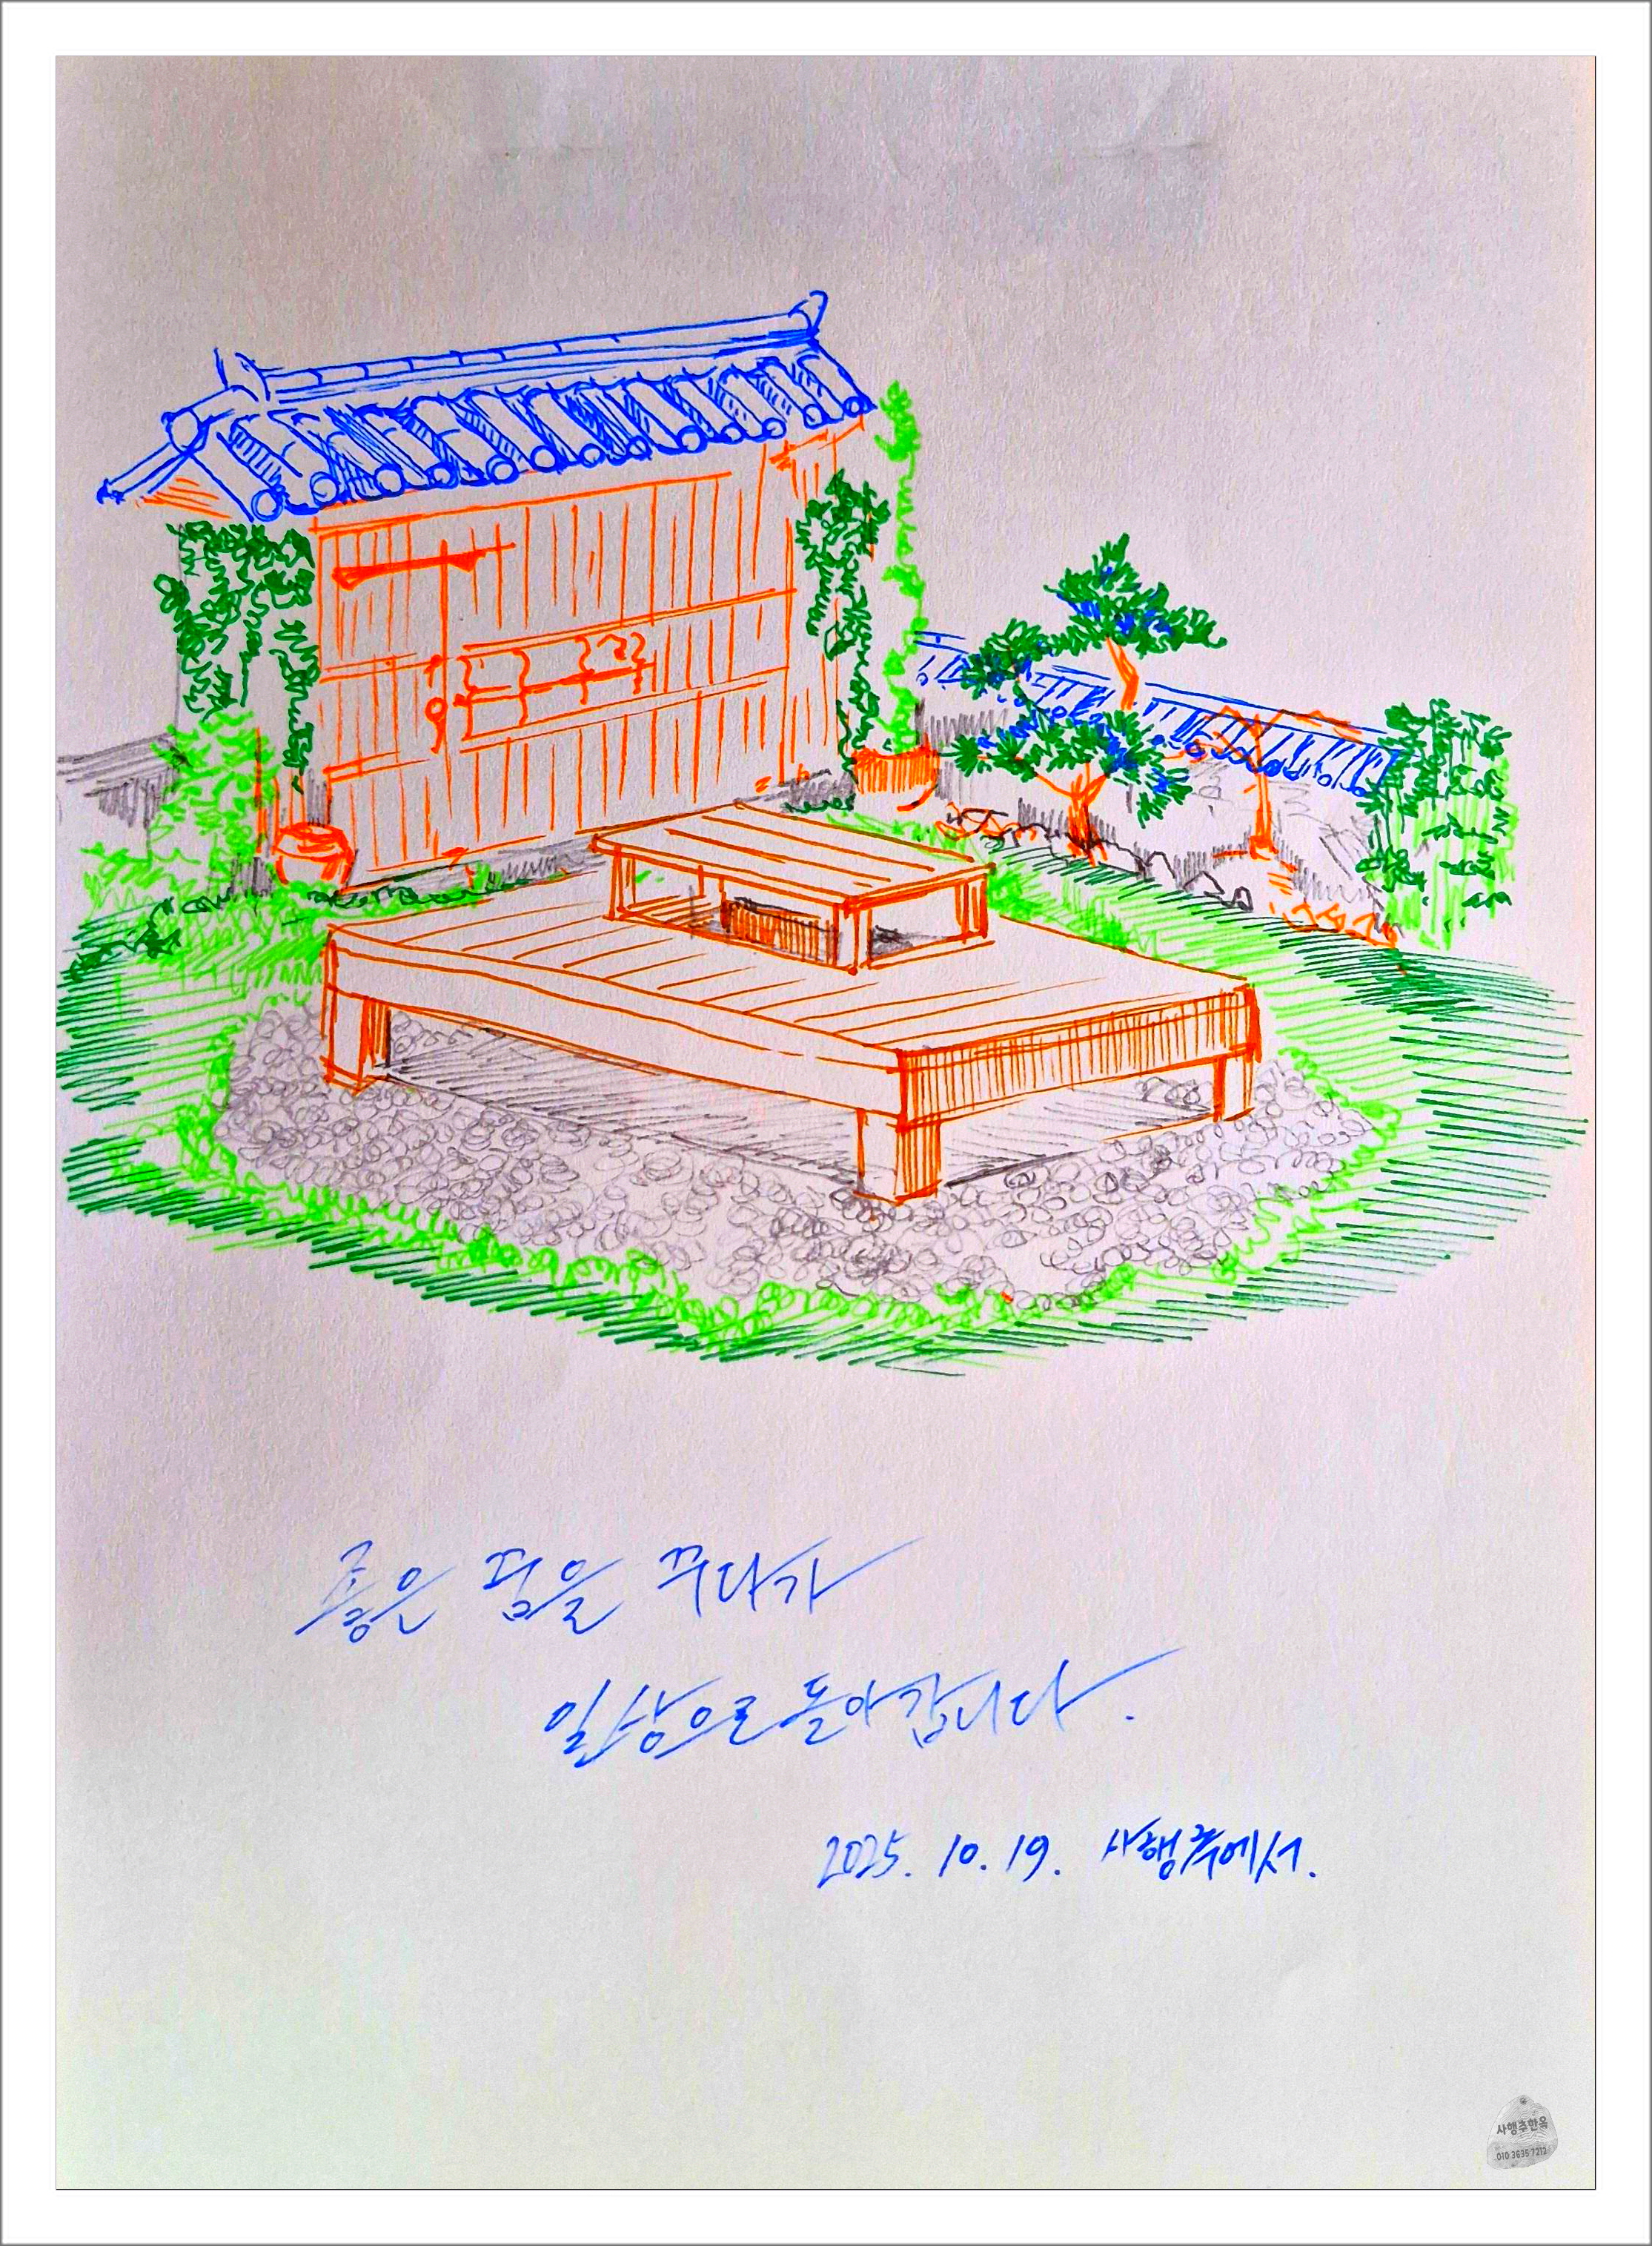 좋은 꿈을 꾸다가
일상으로 돌아갑니다.
2025. 10. 19. 사행추에서.
사행추한옥
010 3635 7212